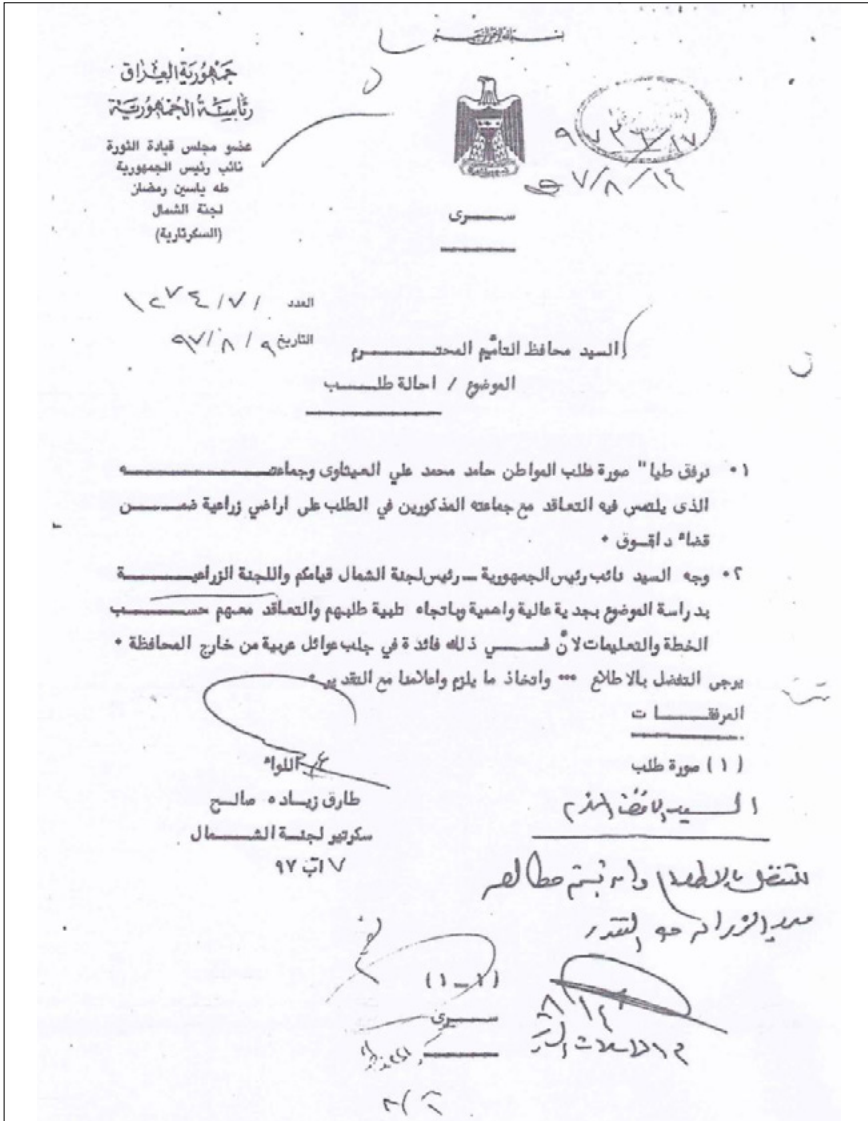 بسم الله الرحمن الرحيم
جمهورية العراق
رئاسة الجمهورية
عضو مجلس قيادة الثورة
نائب رئيس الجمهورية
طه ياسين رمضان
لجنة الشمال
(السكرتارية)
سرى
العدد ١٢٧٤/٧/
التاريخ ٩٧/٨/٩
السيد محافظ التأميم المحترم
الموضوع / احالة طلب
١٠ نرفق طيا" صورة طلب المواطن حامد محمد علي العيثاوى وجماعته
الذى يلتمس فيه التعاقد مع جماعته المذكورين في الطلب على اراضي زراعية ضمن
قضاء داقوق ٠
٢٠ وجه السيد نائب رئيس الجمهورية - رئيس لجنة الشمال قيامكم واللجنة الزراعية
بدراسة الموضوع بجدية عالية واهمية وباتجاه تلبية طلبهم والتعاقد معهم حسب
الخطة والتعليمات لانّ في ذلك فائدة في جلب عوائل عربية من خارج المحافظة ٠
يرجى التفضل بالاطلاع ٠٠٠ واتخاذ ما يلزم واعلامنا مع التقدير ٠
المرفقات
(١) صورة طلب
اللواء
طارق زياده صالح
سكرتير لجنة الشمال
٧ اب ٩٧
السيد المحافظ المحترم
للتفضل بالاطلاع
مع التقدير
(١-١)
سرى